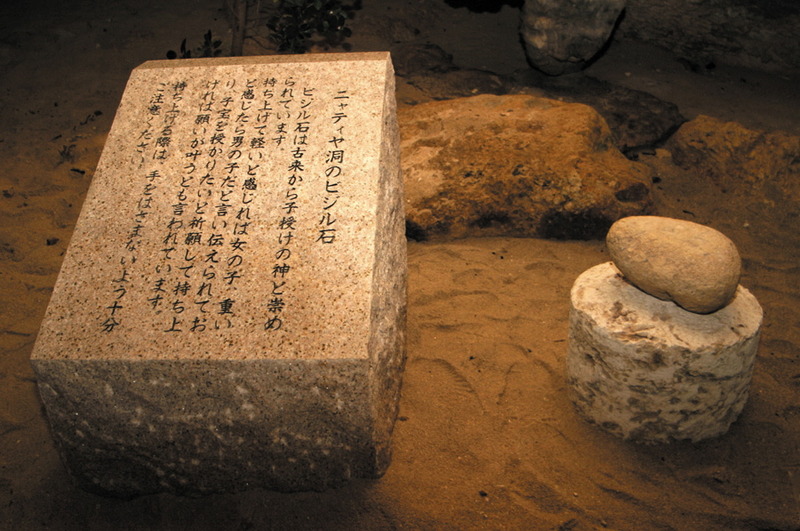 ニャティヤ洞のビジル石
ビジル石は古来から子授けの神と崇め
られています
持ち上げて軽いと感じれば女の子、重い
と感じたら男の子だと言い伝えられてお
り、子宝を授かりたいと祈願して持ち上
げれば願いが叶うとも言われています。
持ち上げる際は、手をはさまないよう十分
ご注意ください。